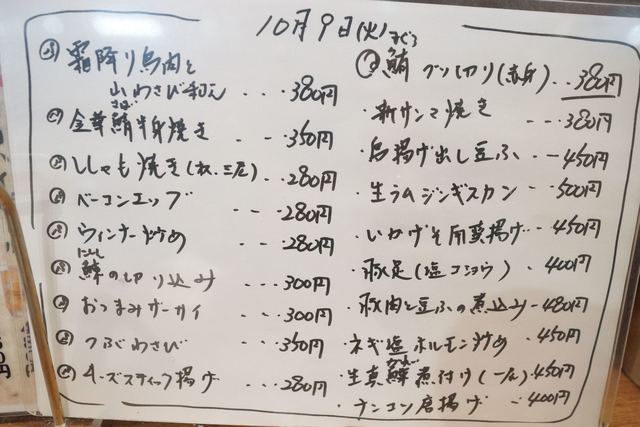 10月9日(火)
霜降り鳥肉と
山わさび和え ... 380円
さば
金華鯖半身焼き .. 350円
ししゃも焼き(  ) .. 280円
ベーコンエッグ ... 280円
ウィンナー炒め ... 280円
にしん
鰊の切り込み ... 300円
おつまみザーサイ ... 300円
つぶわさび ... 350円
チーズスティック揚げ ... 280円
まぐろ
鮪 ブツ切り(赤身) .. 380円
・新サンマ焼き ... 380円
・鳥揚げ出し豆ふ .. 450円
・生ラムジンギスカン .. 500円
・いかげそ唐揚げ .. 450円
・豚足(塩コショウ) .. 400円
・豚肉と豆ふの煮込み .. 480円
・ネギ塩ホルモン炒め .. 450円
・生真鰈煮付け() .. 450円
・ナンコツ唐揚げ .. 400円